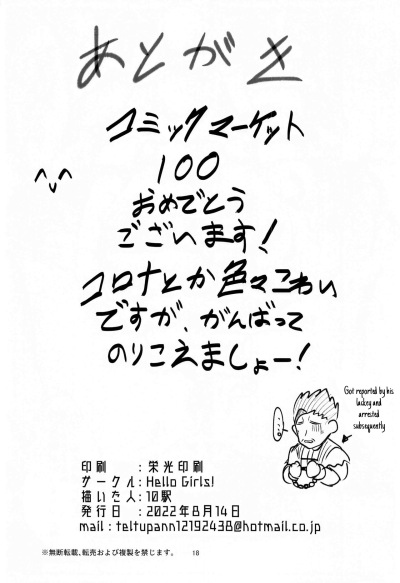 あとがき
コミックマーケット
100
おめでとう
ございます!
コロナとか色々こわい
ですが、がんばって
のりこえましょー!
Got reported by his
lackey and
arrested
subsequently
印刷 :栄光印刷
サークル:Hello Girls!
描いた人:10駅
発行日 :2022年8月14日
mail:teltupann12192438@hotmail.co.jp
※無断転載、転売および複製を禁じます。
18